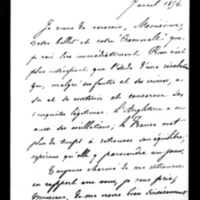 7 avril 1876.
Je viens de recevoir, Monsieur,
votre billet et votre
vais lire immédiatement. Rien n'est
plus intéressant que l'étude d'une révolution
qui, malgré ses fautes et ses crimes, a
su se soutenir et conserver ses
conquêtes légitimes. L'Angleterre a eu
aussi ses oscillations, la France met
plus de temps à retrouver son équilibre;
espérons qu'elle y parviendra un jour.
Toujours charmé de me retrouver
en rapport avec vous, je vous prie,
Monsieur, de me croire bien sincèrement